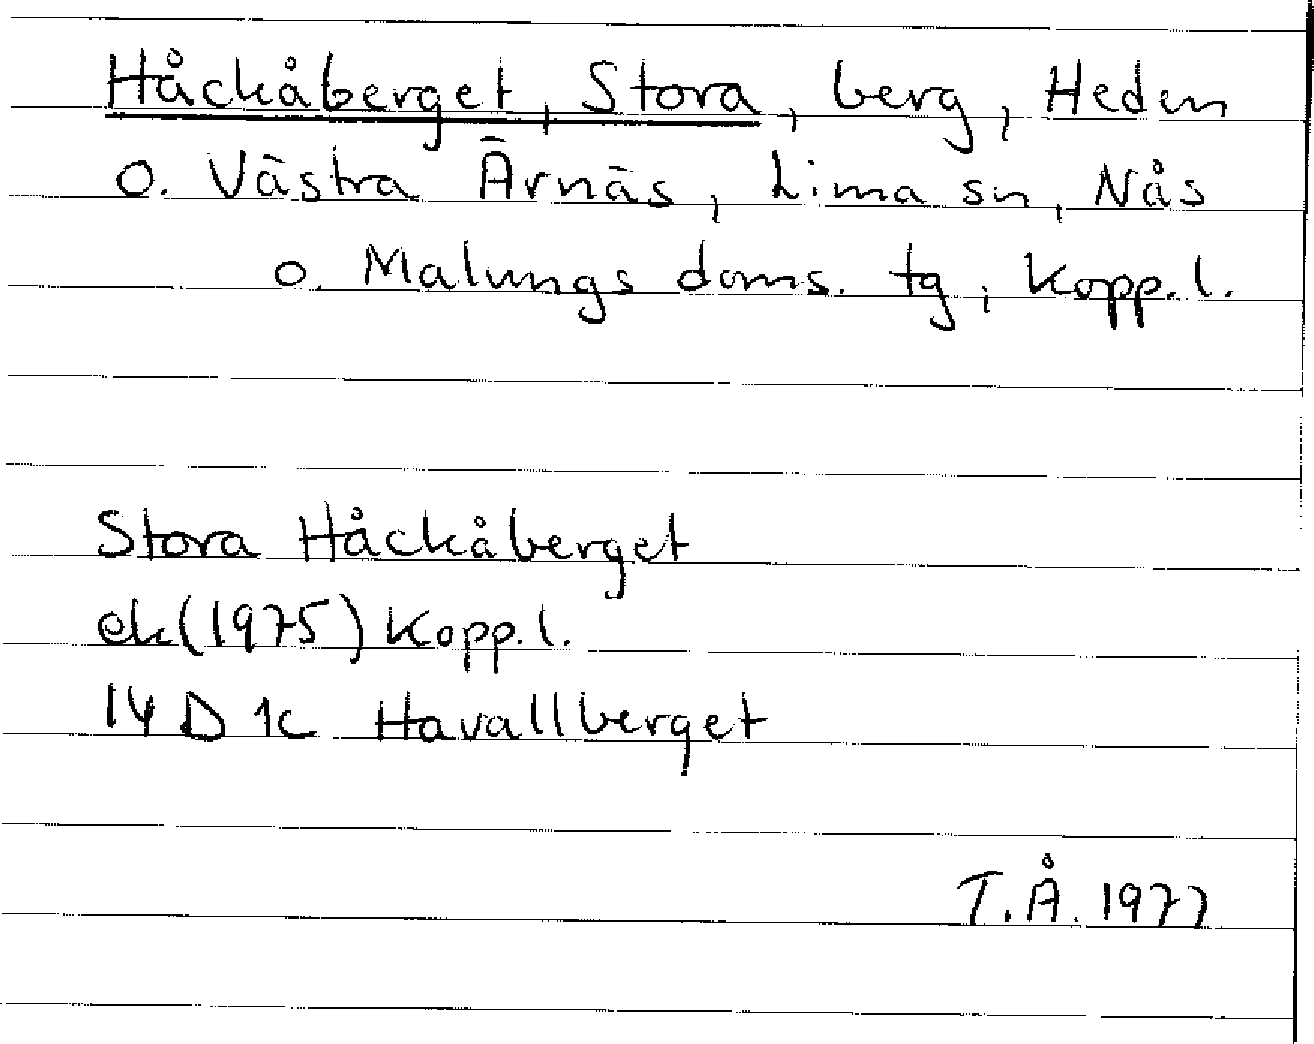 Håckåberget, Stora, berg, Heden
o. Västra Ärnäs, Lima sn, Nås
o. Malungs doms. tg, Kopp.l.
Stora Håckåberget
ek(1975) Kopp.l.
14 D 1c Havallberget
T.Å. 1977